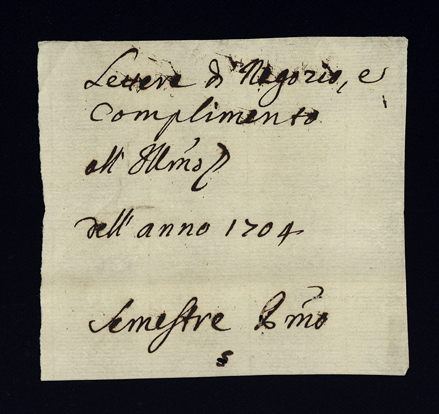 Lettere di Negozio, e
Complimento
all' Illmo
dell' anno 1704
Semestre Pmo